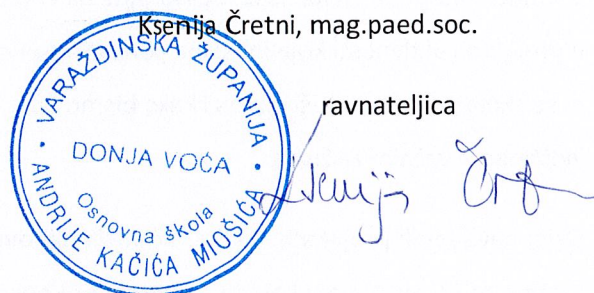 Ksenija Čretni, mag.paed.soc.
ravnateljica
VARAŽDINSKA ŽUPANIJA
DONJA VOĆA
Osnovna škola
ANDRIJE KAČIĆA MIOŠIĆA
Ksenija